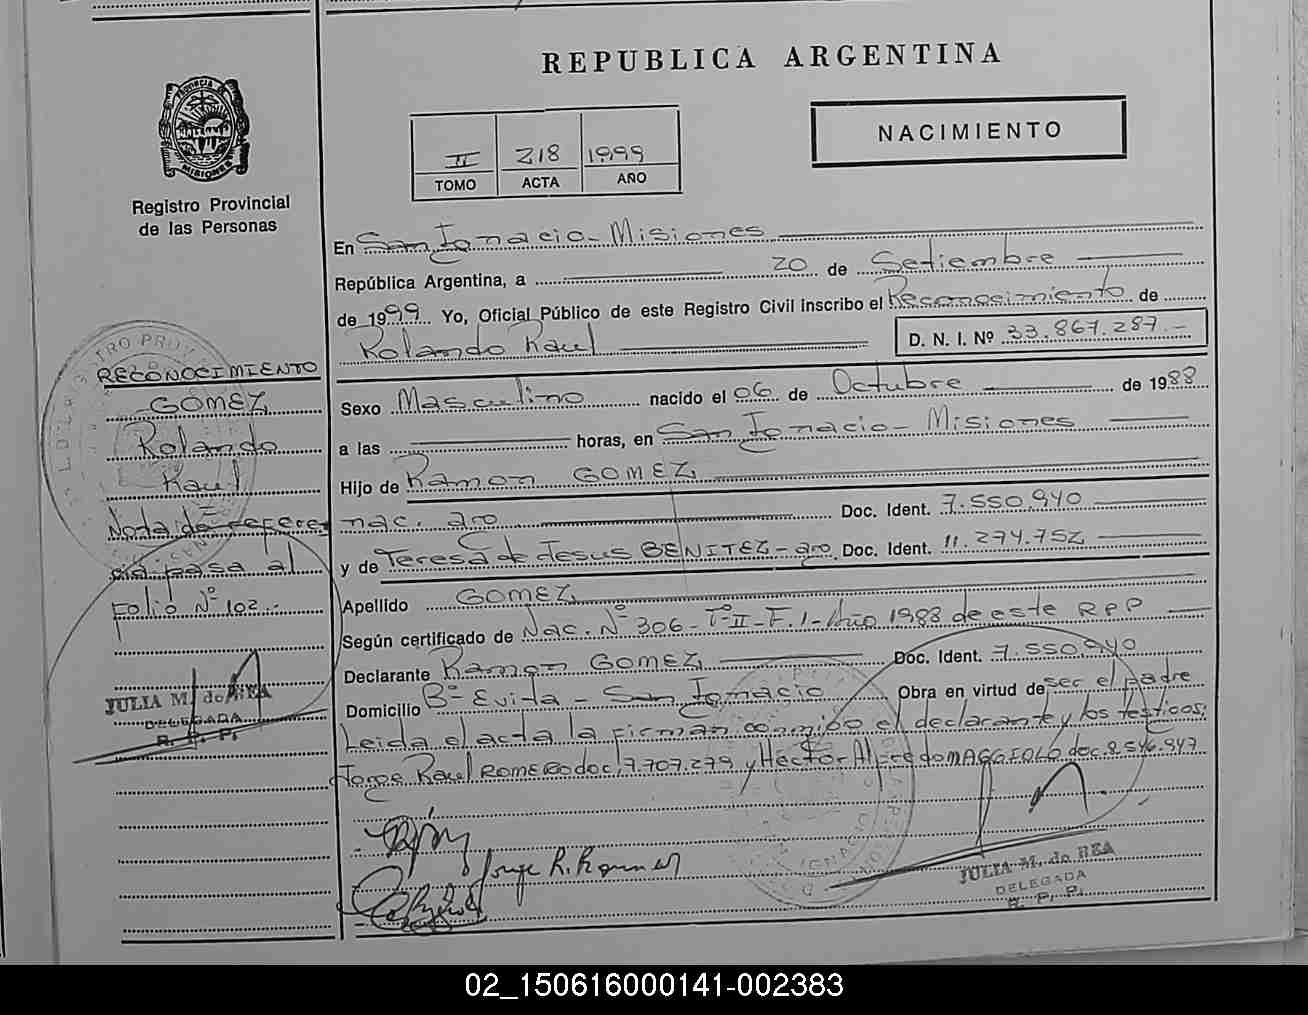 REPUBLICA ARGENTINA
PROVINCIA DE
MISIONES
Registro Provincial
de las Personas
II 218 1999
TOMO ACTA AÑO
NACIMIENTO
En San Ignacio - Misiones
República Argentina, a 20 de Setiembre
de 1999 Yo, Oficial Público de este Registro Civil inscribo el Reconocimiento de
Rolando Raul
D. N. I. Nº 33.867.287.-
Sexo Masculino nacido el 06 de Octubre de 1988
a las horas, en San Ignacio - Misiones
Hijo de Ramon GOMEZ
nac. aro Doc. Ident. 7.550.940
y de Teresa de Jesus BENITEZ - aro Doc. Ident. 11.274.752
Apellido GOMEZ
Según certificado de Nac. Nº 306 - Tº II - F. 1 - Año 1988 de este RPP
Declarante Ramon GOMEZ Doc. Ident. 7.550.940
Domicilio Bº Evita - San Ignacio Obra en virtud de ser el padre
Leida el acta la firman conmigo el declarante y los testigos:
Jorge Raul ROMERO doc. 7.707.279 y Hector Alfredo MAGGIOLO doc. 8.546.947
Jorge R. Romero
JULIA M. de REA
DELEGADA
R. P. P.
RECONOCIMIENTO
GOMEZ
Rolando
Raul
Nota de referen
cia pasa al
Folio Nº 102.-
JULIA M. de REA
DELEGADA
R. P. P.
02_150616000141-002383